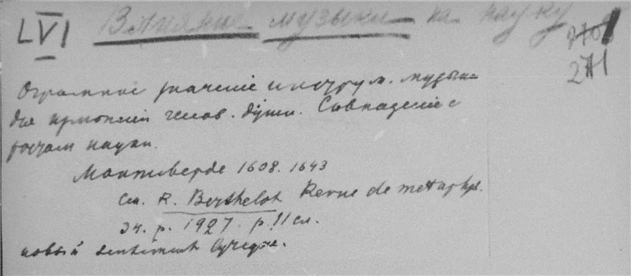 LVI Влияние музыки на науку
271
Огромное значение инструм. музыки
для гармонии челов. души. Совпадение с
ростом науки.
Монтеверде 1608. 1643
См. R. Berthelot Revue de métaph.
1927. p. 11 сл.
новый sentiment